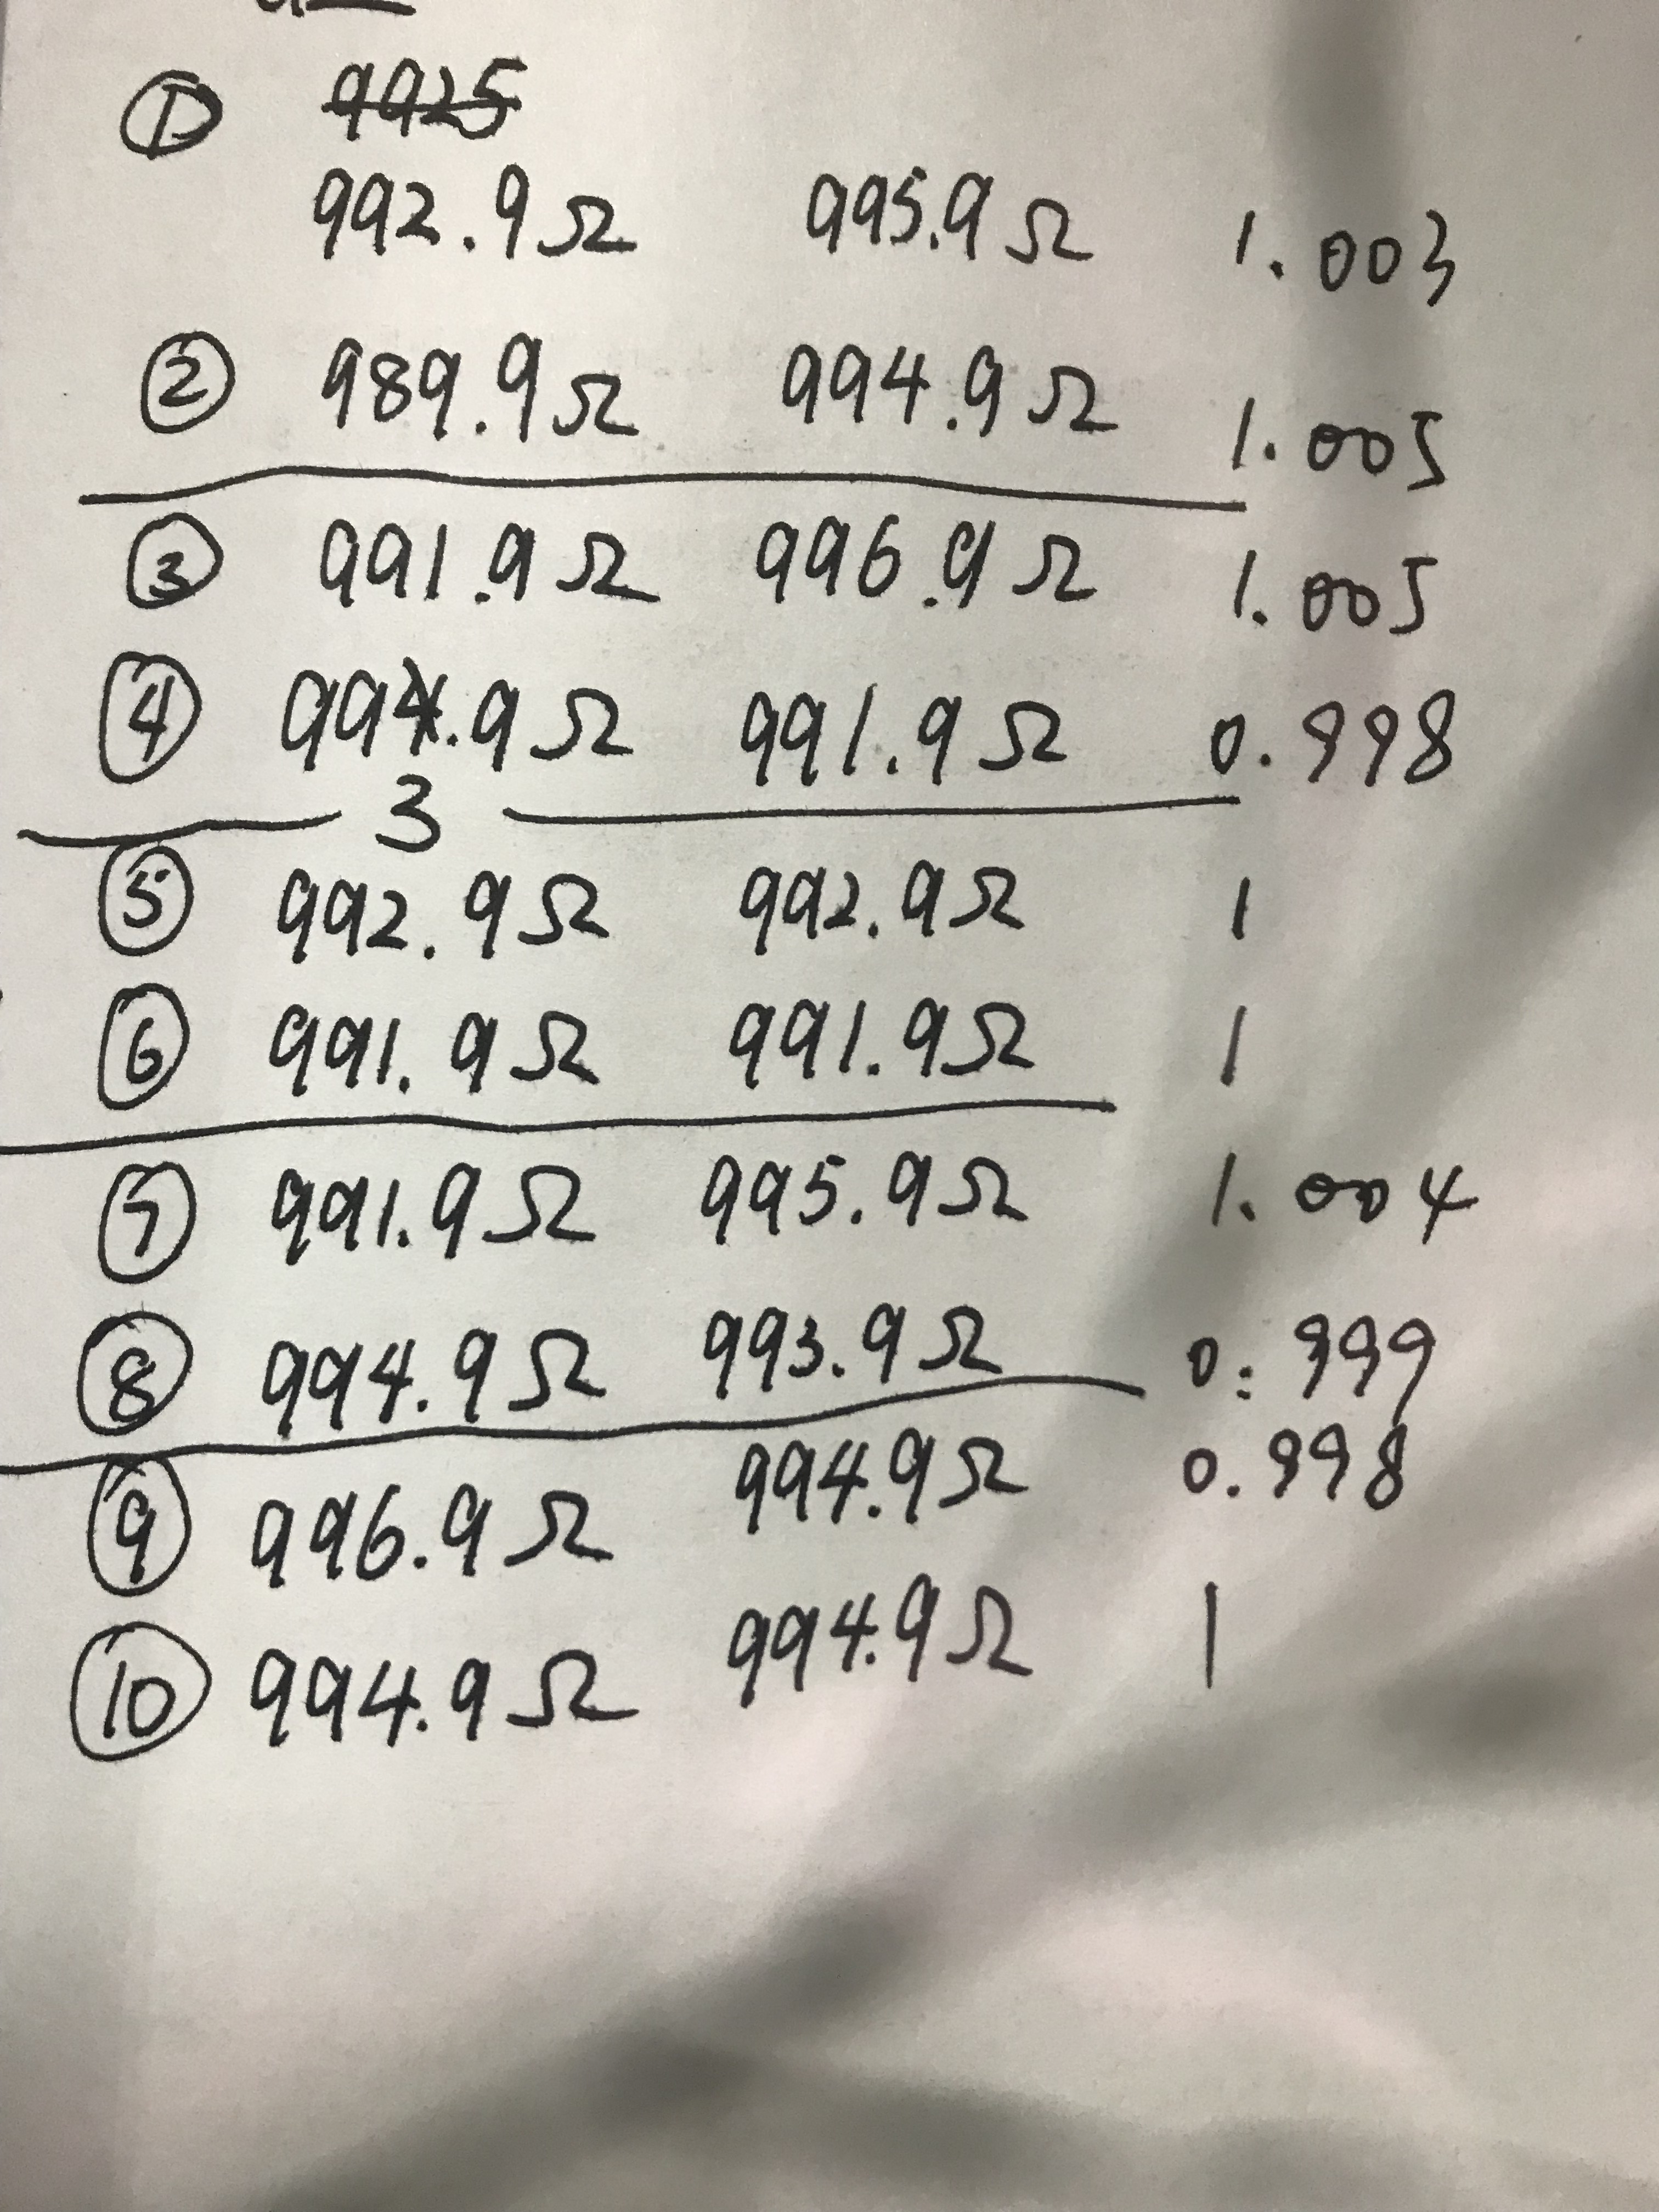 ① 9925
992.9Ω 995.9Ω 1.003
② 989.9Ω 994.9Ω 1.005
③ 991.9Ω 996.9Ω 1.005
④ 994.9Ω 991.9Ω 0.998
3
⑤ 992.9Ω 992.9Ω 1
⑥ 991.9Ω 991.9Ω 1
⑦ 991.9Ω 995.9Ω 1.004
⑧ 994.9Ω 993.9Ω 0.999
⑨ 996.9Ω 994.9Ω 0.998
⑩ 994.9Ω 994.9Ω 1